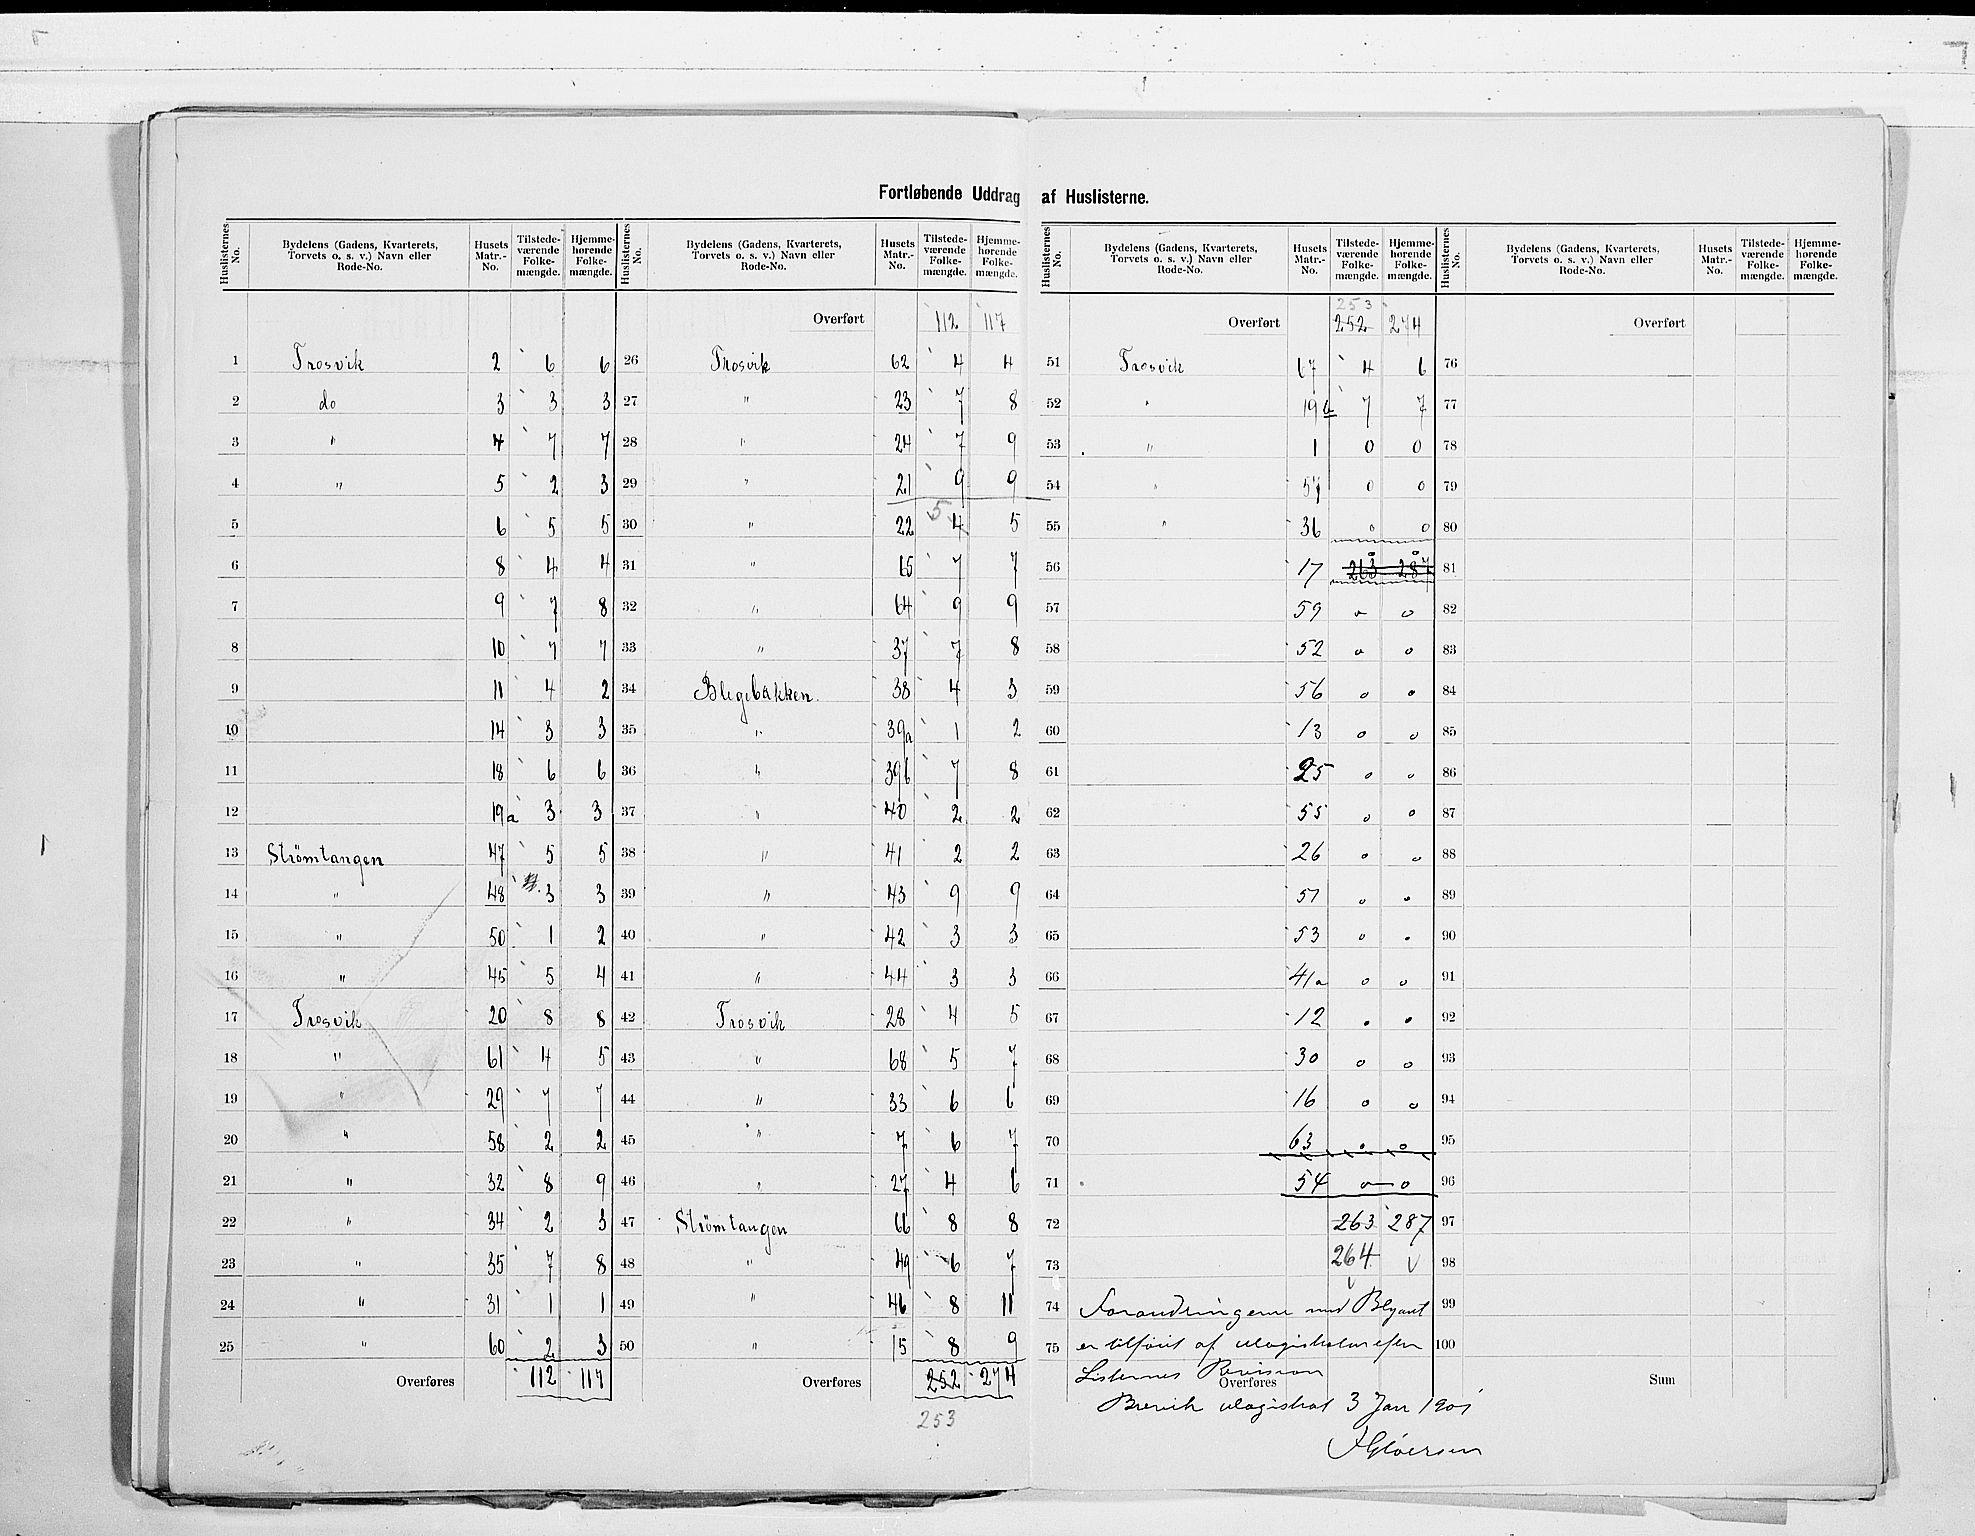 Fortløbende Uddrag af Huslisterne.
Huslisternes No. | Bydelens (Gadens, Kvarterets, Torvets o. s. v.) Navn eller Rode-No. | Husets Matr.-No. | Tilstedeværende Folkemængde. | Hjemmehørende Folkemængde.
1 Trosvik 2 6 6
2 do 3 3 3
3 " 4 7 7
4 " 5 2 3
5 6 5 5
6 8 4 4
7 9 7 8
8 10 7 7
9 11 4 2
10 14 3 3
11 18 6 6
12 19a 3 3
13 Strömtangen 47 5 5
14 " 48 3 3
15 " 50 1 2
16 " 45 5 4
17 Trosvik 20 8 8
18 " 61 4 5
19 " 29 7 7
20 " 58 2 2
21 " 32 8 9
22 " 34 2 3
23 " 35 7 8
24 " 31 1 1
25 " 60 2 3
Overføres 112 117
Huslisternes No. | Bydelens (Gadens, Kvarterets, Torvets o. s. v.) Navn eller Rode-No. | Husets Matr.-No. | Tilstedeværende Folkemængde. | Hjemmehørende Folkemængde.
Overført 112 117
26 Trosvik 62 4 4
27 " 23 7 8
28 " 24 7 9
29 " 21 9 9
30 " 22 5 4 5
31 " 65 7 7
32 " 64 9 9
33 " 37 7 8
34 Blegebakken. 38 4 3
35 " 39a 1 2
36 " 39b 7 8
37 " 40 2 2
38 " 41 2 2
39 " 43 9 9
40 " 42 3 3
41 " 44 3 3
42 Trosvik 28 4 5
43 " 68 5 7
44 " 33 6 6
45 " 7 6 7
46 " 27 4 6
47 Strömtangen 66 8 8
48 " 49 6 7
49 " 46 8 11
50 " 15 8 9
Overføres 252 274
253
Huslisternes No. | Bydelens (Gadens, Kvarterets, Torvets o. s. v.) Navn eller Rode-No. | Husets Matr.-No. | Tilstedeværende Folkemængde. | Hjemmehørende Folkemængde.
253
Overført 252 274
51 Trosvik 67 4 6
52 " 19b 7 7
53 " 1 0 0
54 " 57 0 0
55 " 36 0 0
56 17 263 287
57 59 0 0
58 52 0 0
59 56 0 0
60 13 0 0
61 25 0 0
62 55 0 0
63 26 0 0
64 51 0 0
65 53 0 0
66 41a 0 0
67 12 0 0
68 30 0 0
69 16 0 0
70 63 0 0
71 54 0 0
72 263 287
73 264
74 Forandringerne med Blyant
75 er tilføiet af Magistraten efter
Listernes Revision
Overføres
Brevik Magistrat 3 Jan 1901
Huslisternes No. | Bydelens (Gadens, Kvarterets, Torvets o. s. v.) Navn eller Rode-No. | Husets Matr.-No. | Tilstedeværende Folkemængde. | Hjemmehørende Folkemængde.
Overført
76
77
78
79
80
81
82
83
84
85
86
87
88
89
90
91
92
93
94
95
96
97
98
99
100
Sum